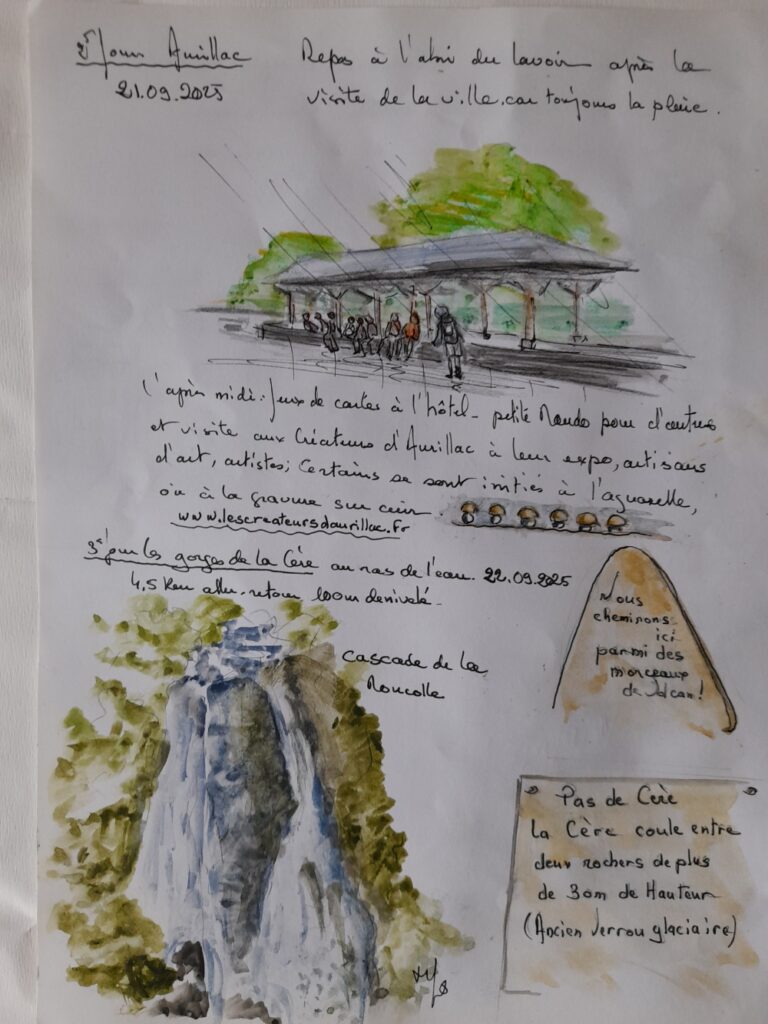 2e Jour Aurillac
21.09.2025
Repas à l'abri du lavoir après la
visite de la ville, car toujours la pluie.
L'après midi : Jeux de cartes à l'hôtel - petite Rando pour d'autres
et visite aux Créateurs d'Aurillac à leur expo, artisans
d'art, artistes; Certains se sont initiés à l'aquarelle,
ou à la gravure sur cuir.
www.lescreateursdaurillac.fr
3e jour les gorges de la Cère au ras de l'eau. 22.09.2025
4,5 km aller-retour 100m denivelé.
Nous
cheminons
ici
parmi des
morceaux
de volcan !
cascade de la
Roucolle
Pas de Cère
la Cère coule entre
deux rochers de plus
de 30m de Hauteur
(Ancien Verrou glaciaire)